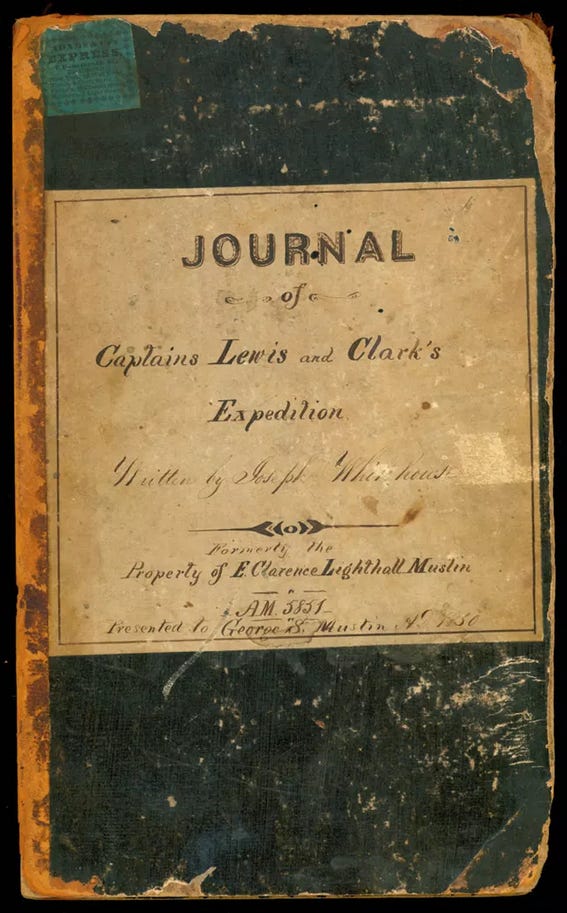 EXPRESS
JOURNAL
of
Captains Lewis and Clark's
Expedition
Written by Joseph Whitehouse
Formerly the
Property of E. Clarence Lighthall Mustin
A.M. 5851
Presented to George S. Mustin